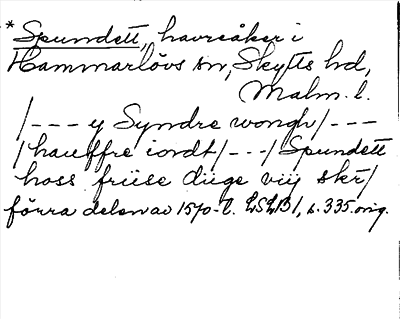 * Spundett, havreåker i
Hammarlövs sn, Skytts hd,
Malm. l.
/--- y Syndre wongh/---
/hauffre iordt/---/ Spundett
hoss friise diige viij skr/
förra delen av 1570-t. LSLB1, s. 335. orig.